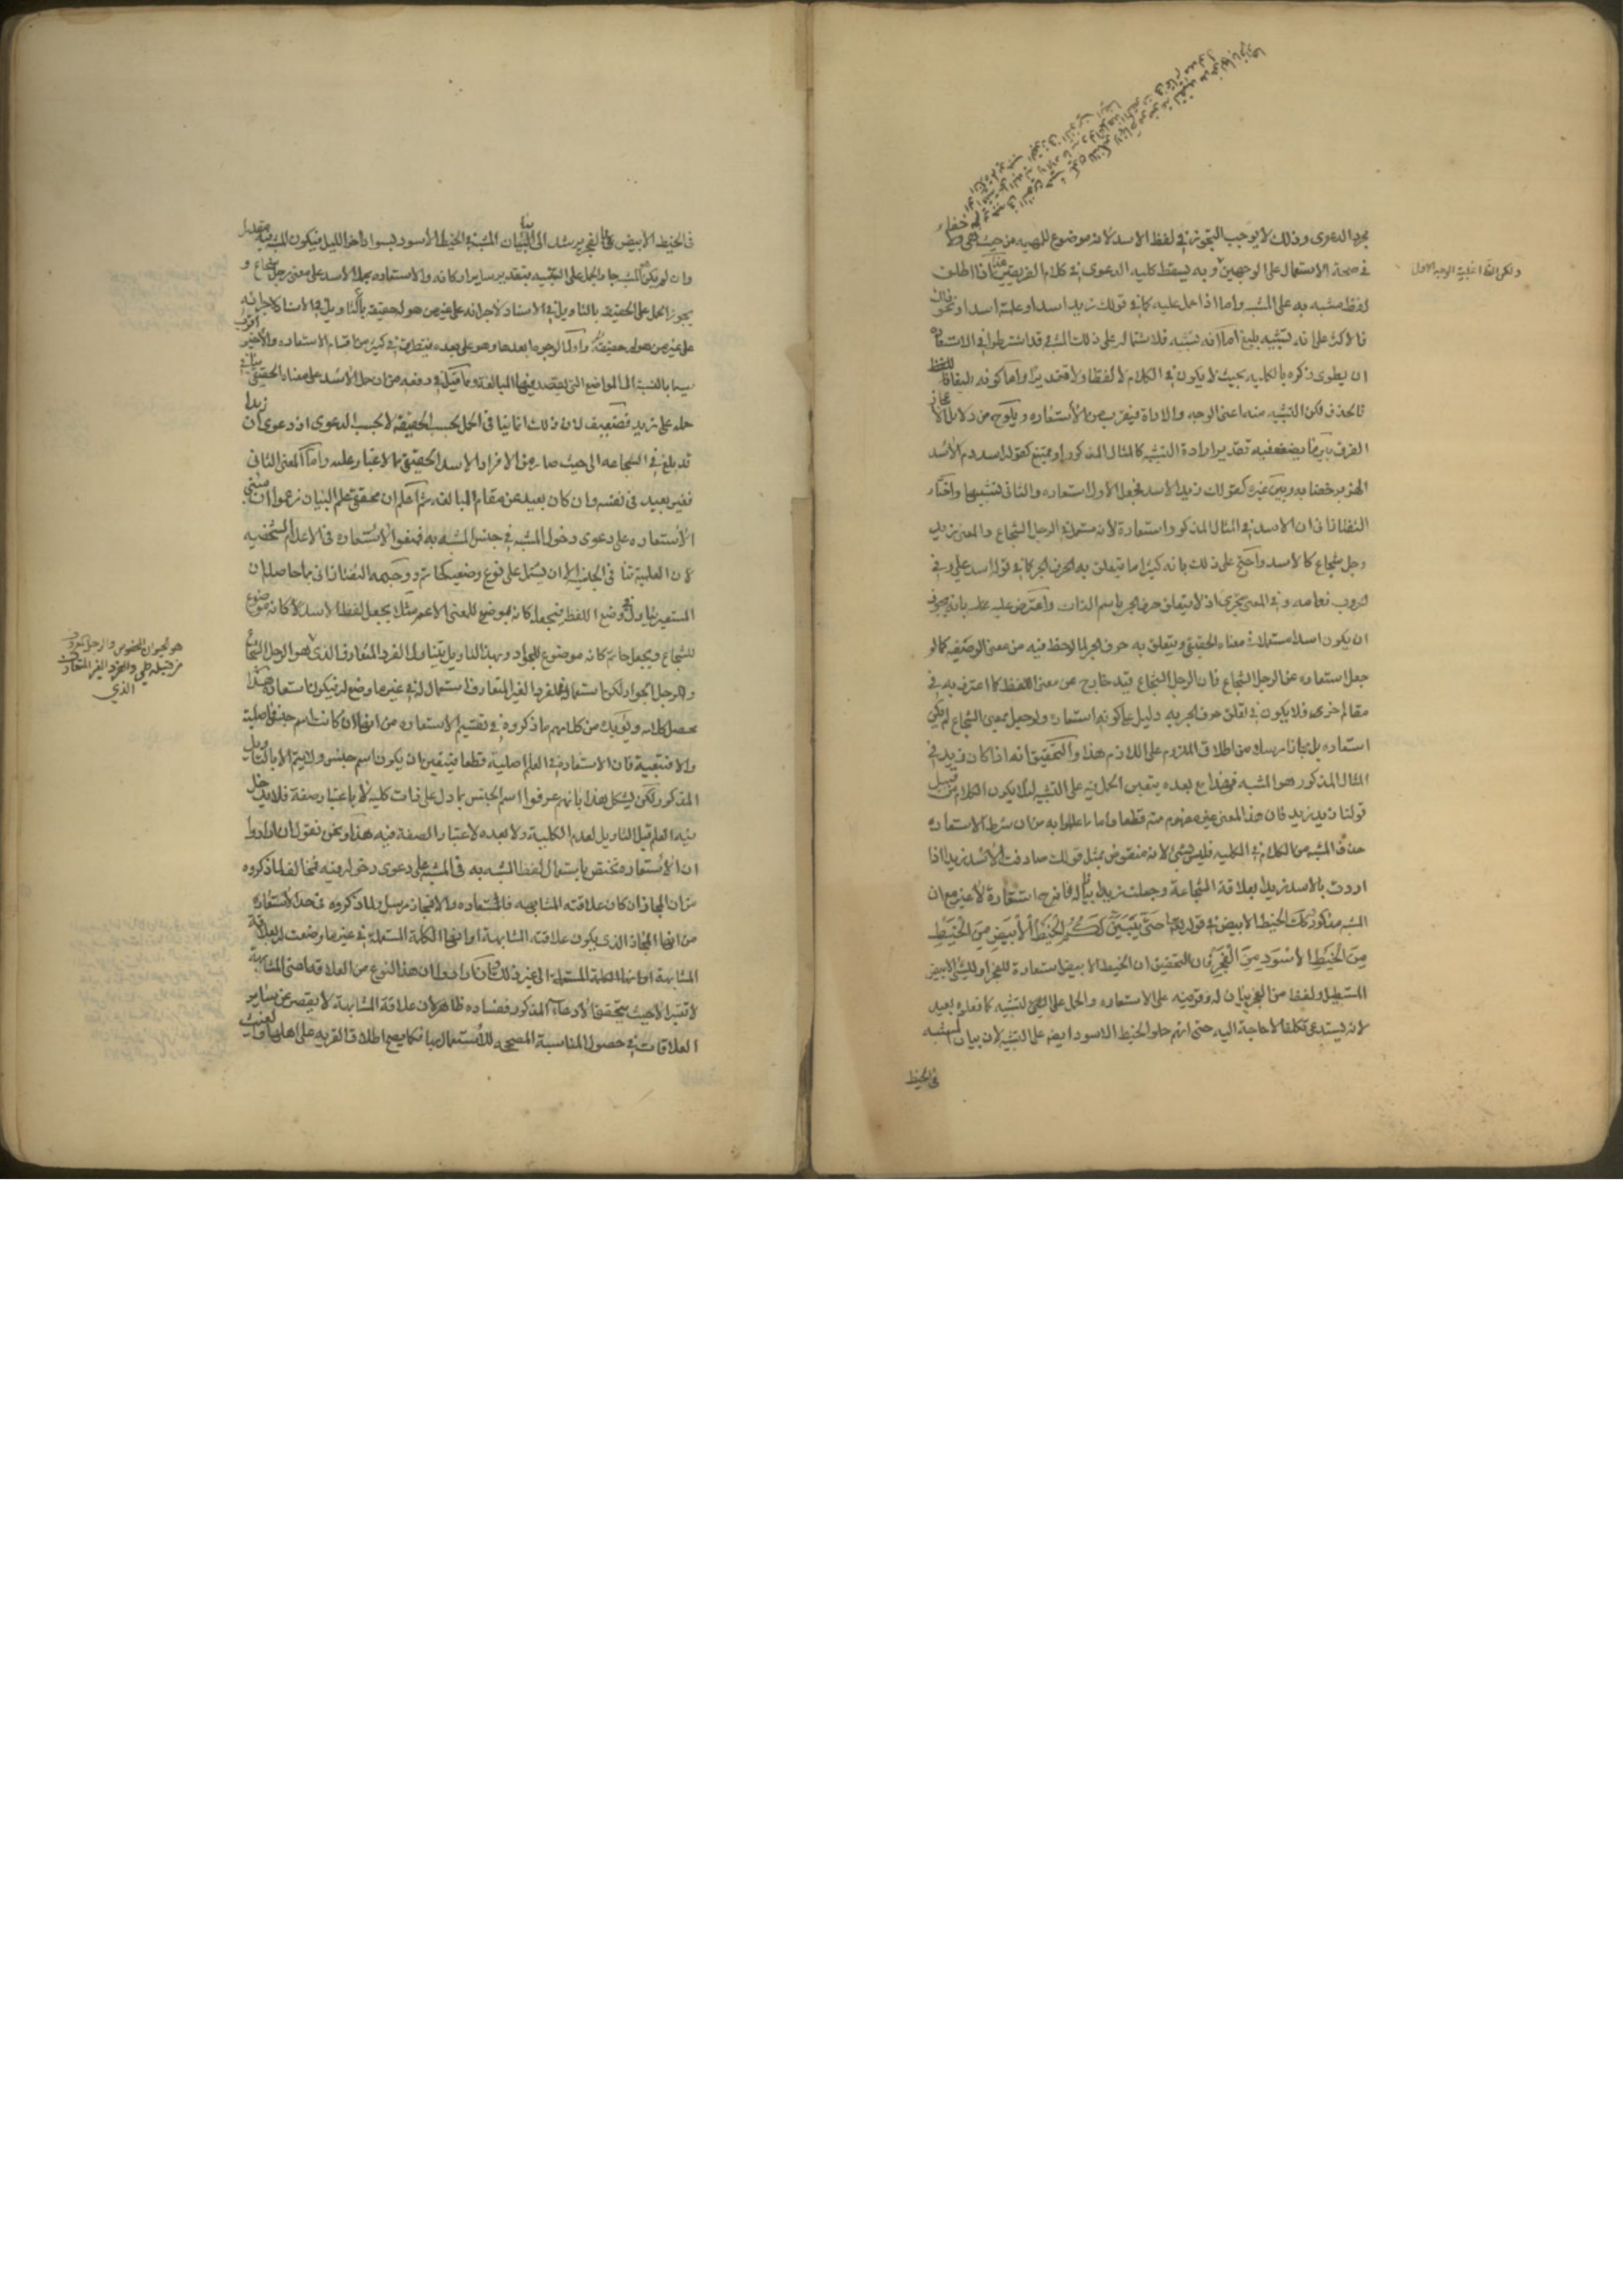 بمجرد الدعوى وذلك لا يوجب التجوز في لفظ الاسد لانه موضوع للمهيه من حيث هي ولا خفاء
في صحة الاستعمال على الوجهين وبه يسقط كليه الدعوى في كلام الفريقين هذا اذا اطلق
ولكن اغلبية الوجه الاول
لفظ مشبه به على المشبه واما اذا حمل عليه كما في قولك زيد اسد او علمته اسدا ونحو ذلك
فالاكثر على انه تشبيه بليغ اما انه تشبيه فلاشتماله على ذلك المشبه وقد اشترطوا في الاستعاره
ان يطوى ذكره بالكليه بحيث لا يكون في الكلام لا لفظا ولا تقديرا واما كونه بليغا فا
فالحذف ركن التشبيه منه اعنى الوجه والاداة فيقرب من الاستعاره ويلوح من دلايل الاعجاز
الفرق بين ما يضعف فيه تقدير اداة التشبيه كالمثال المذكور او يمتنع كقوله اسد دم الاسد
الهزبر خضابه وبين غيره كقولك زيد الاسد فجعل الاول استعاره والثانى تشبيها واختار
التفتازانى ان الاسد في المثال المذكور استعارة لانه مستعمل في الرجل الشجاع والمعنى زيد
رجل شجاع كالاسد واحتج على ذلك بانه كثيرا ما يتعلق به الحرف الجر كما في قوله اسد على وفي
الحروب نعامه وفي المعنى مجترئ اذ لا يتعلق حرف الجر باسم الذات واعترض عليه بانه يجوز
ان يكون اسد مستعملا في معناه الحقيقى ويتعلق به حرف الجر لما لوحظ فيه من معنى الوصفيه كما لو
جعل استعاره عن الرجل الشجاع فان الرجل الشجاع قيد خارج عن معنى اللفظ كما اعترف به في
مقام اخرى فلا يكون في تعلق حرف الجر به دليل على كونه استعارة ولو جعل بمعنى الشجاع لم يكن
استعاره بل مجازا مرسلا من اطلاق الملزوم على اللازم هذا والتحقيق انه اذا كان زيد في
المثال المذكور هو المشبه فهذا مع بعده يتعين الحمل فيه على التشبيه لئلا يكون الكلام من قبيل
قولنا زيد زيد فان هذا المعنى غير مفهوم منه قطعا واما ما عللوا به من ان شرط الاستعاره
حذف المشبه من الكلام في الكليه فليس بشئ لانه منقوض بمثل قولك صادفت الاسد زيدا اذا
اردت بالاسد زيدا بعلاقة الشجاعة وجعلت زيدا بيانا له فانه استعارة لا غير مع ان
المشبه مذكور وكذلك الخيط الابيض في قوله تعالى حَتَّى يَتَبَيَّنَ لَكُمُ الْخَيْطُ الْأَبْيَضُ مِنَ الْخَيْطِ
مِنَ الْخَيْطِ الْأَسْوَدِ مِنَ الْفَجْرِ فان التحقيق ان الخيط الابيض استعارة للفجر او للشئ الابيض
المستطيل ولفظ من الفجر بيان له وقرينه على الاستعاره والحمل على التشبيه كما فعلوه بعيد
لانه يستدعى تكلفا لا حاجة اليه حتى انهم حملوا الخيط الاسود ايضا على التشبيه لان بيان المشبه
في الخيط
في الخيط الابيض بالفجر يرشد الى ان البيان المشبه في الخيط الاسود بسواد اخر الليل فيكون المشبه فيه مقدرا
وان لم يكن المشبه جاز الحمل على التشبيه بتقدير ساير اركانه والاستعاره بحمل الاسد على معنى رجل شجاع و
يجوز الحمل على الحقيقه بالتأويل في الاسناد لاجرائه على غير من هو له حقيقة بالتأويل في الاسناد لاجرائه
على غير من هو له حقيقة واول الوجوه ابعدها وهو على بعده ينطبق في كثير من اقسام الاستعاره والاخير اقرب
سيما بالنسبة الى المواضع التى يقصد فيها المبالغه وما قيل في دفعه من ان حمل الاسد على معناه الحقيقى ينافى
حمله على زيد فضعيف لان ذلك انما ينافى الحمل بحسب الحقيقه لا بحسب الدعوى اذ دعوى ان زيدا
قد بلغ في الشجاعه الى حيث صار من الافراد الاسد الحقيقى مما لا غبار عليه واما المعنى الثانى
فغير بعيد في نفسه وان كان بعيد عن مقام المبالغه ثم اعلم ان محققى علم البيان زعموا ان مبنى
الاستعاره على دعوى دخول المشبه في جنس المشبه به فمنعوا الاستعاره في الاعلام الشخصيه
لان العلمية تنافى الجنسيه الا ان يشمل على نوع وصفيه كحاتم ووجهه التفتازانى بما حاصله ان
المستعير يتأول في وضع اللفظ فيجعله كانه موضوع للمعنى الاعم مثلا يجعل لفظ الاسد كانه موضوع
للشجاع ويجعل حاتم كانه موضوع للجواد وبهذا التاويل يتناول الفرد المتعارف الذى هو الرجل الشجاع
هو الحيوان المخصوص والرجل المعروف
من قبيله طى والفرد الغير المتعارف
الذي
والرجل الجواد لكن استعماله في الفرد الغير المتعارف استعمال له في غير ما وضع له فيكون استعاره هذا
محصل كلامه ويؤيده من كلامهم ما ذكروه في تقسيم الاستعاره من انها ان كانت اسم جنس فاصلية
والا فتبعية فان الاستعاره في العلم اصلية قطعا فيتعين ان يكون اسم جنس ولا يتم الا بالتاويل
المذكور لكن يشكل هذا بانهم عرفوا اسم الجنس بما دل على ذات كليه لا باعتبار صفة فلا يدخل
فيه العلم قبل التاويل لعدم الكلية ولا بعده لاعتبار الصفة فيه هذا ونحن نقول ان ارادوا
ان الاستعاره تختص باستعمال لفظ المشبه به في المشبه على دعوى دخوله فيه فمخالف لما ذكروه
من ان المجاز ان كان علاقته المشابهه فاستعاره والا فمجاز مرسل ولما ذكروه في حد الاستعاره
من انها المجاز الذى يكون علاقته المشابهة او انها الكلمة المستعملة في غير ما وضعت له بعلاقة
المشابهة او انها الكلمة المستعملة الى غير ذلك وان ارادوا ان هذا النوع من العلاقه اعنى المشابهة
لا تعتبر الا حيث يتحقق الادعاء المذكور ففساده ظاهر لان علاقة المشابهة لا يقصر عن ساير
العلاقات في حصول المناسبة المصححه للاستعمال بها فكما يصح اطلاق القريه على اهلها